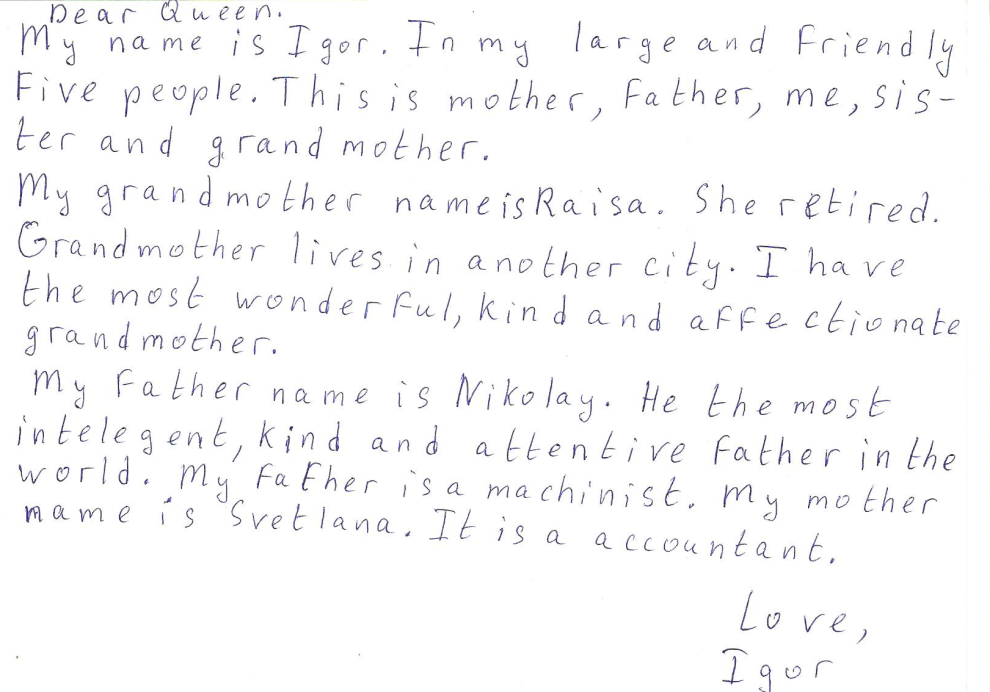 Dear Queen.
My name is Igor. In my large and friendly
Five people. This is mother, father, me, sis-
ter and grandmother.
My grandmother name is Raisa. She retired.
Grandmother lives in another city. I have
the most wonderful, kind and affectionate
grandmother.
My father name is Nikolay. He the most
intelegent, kind and attentive father in the
world. My father is a machinist. My mother
name is Svetlana. It is a accountant.
Love,
Igor